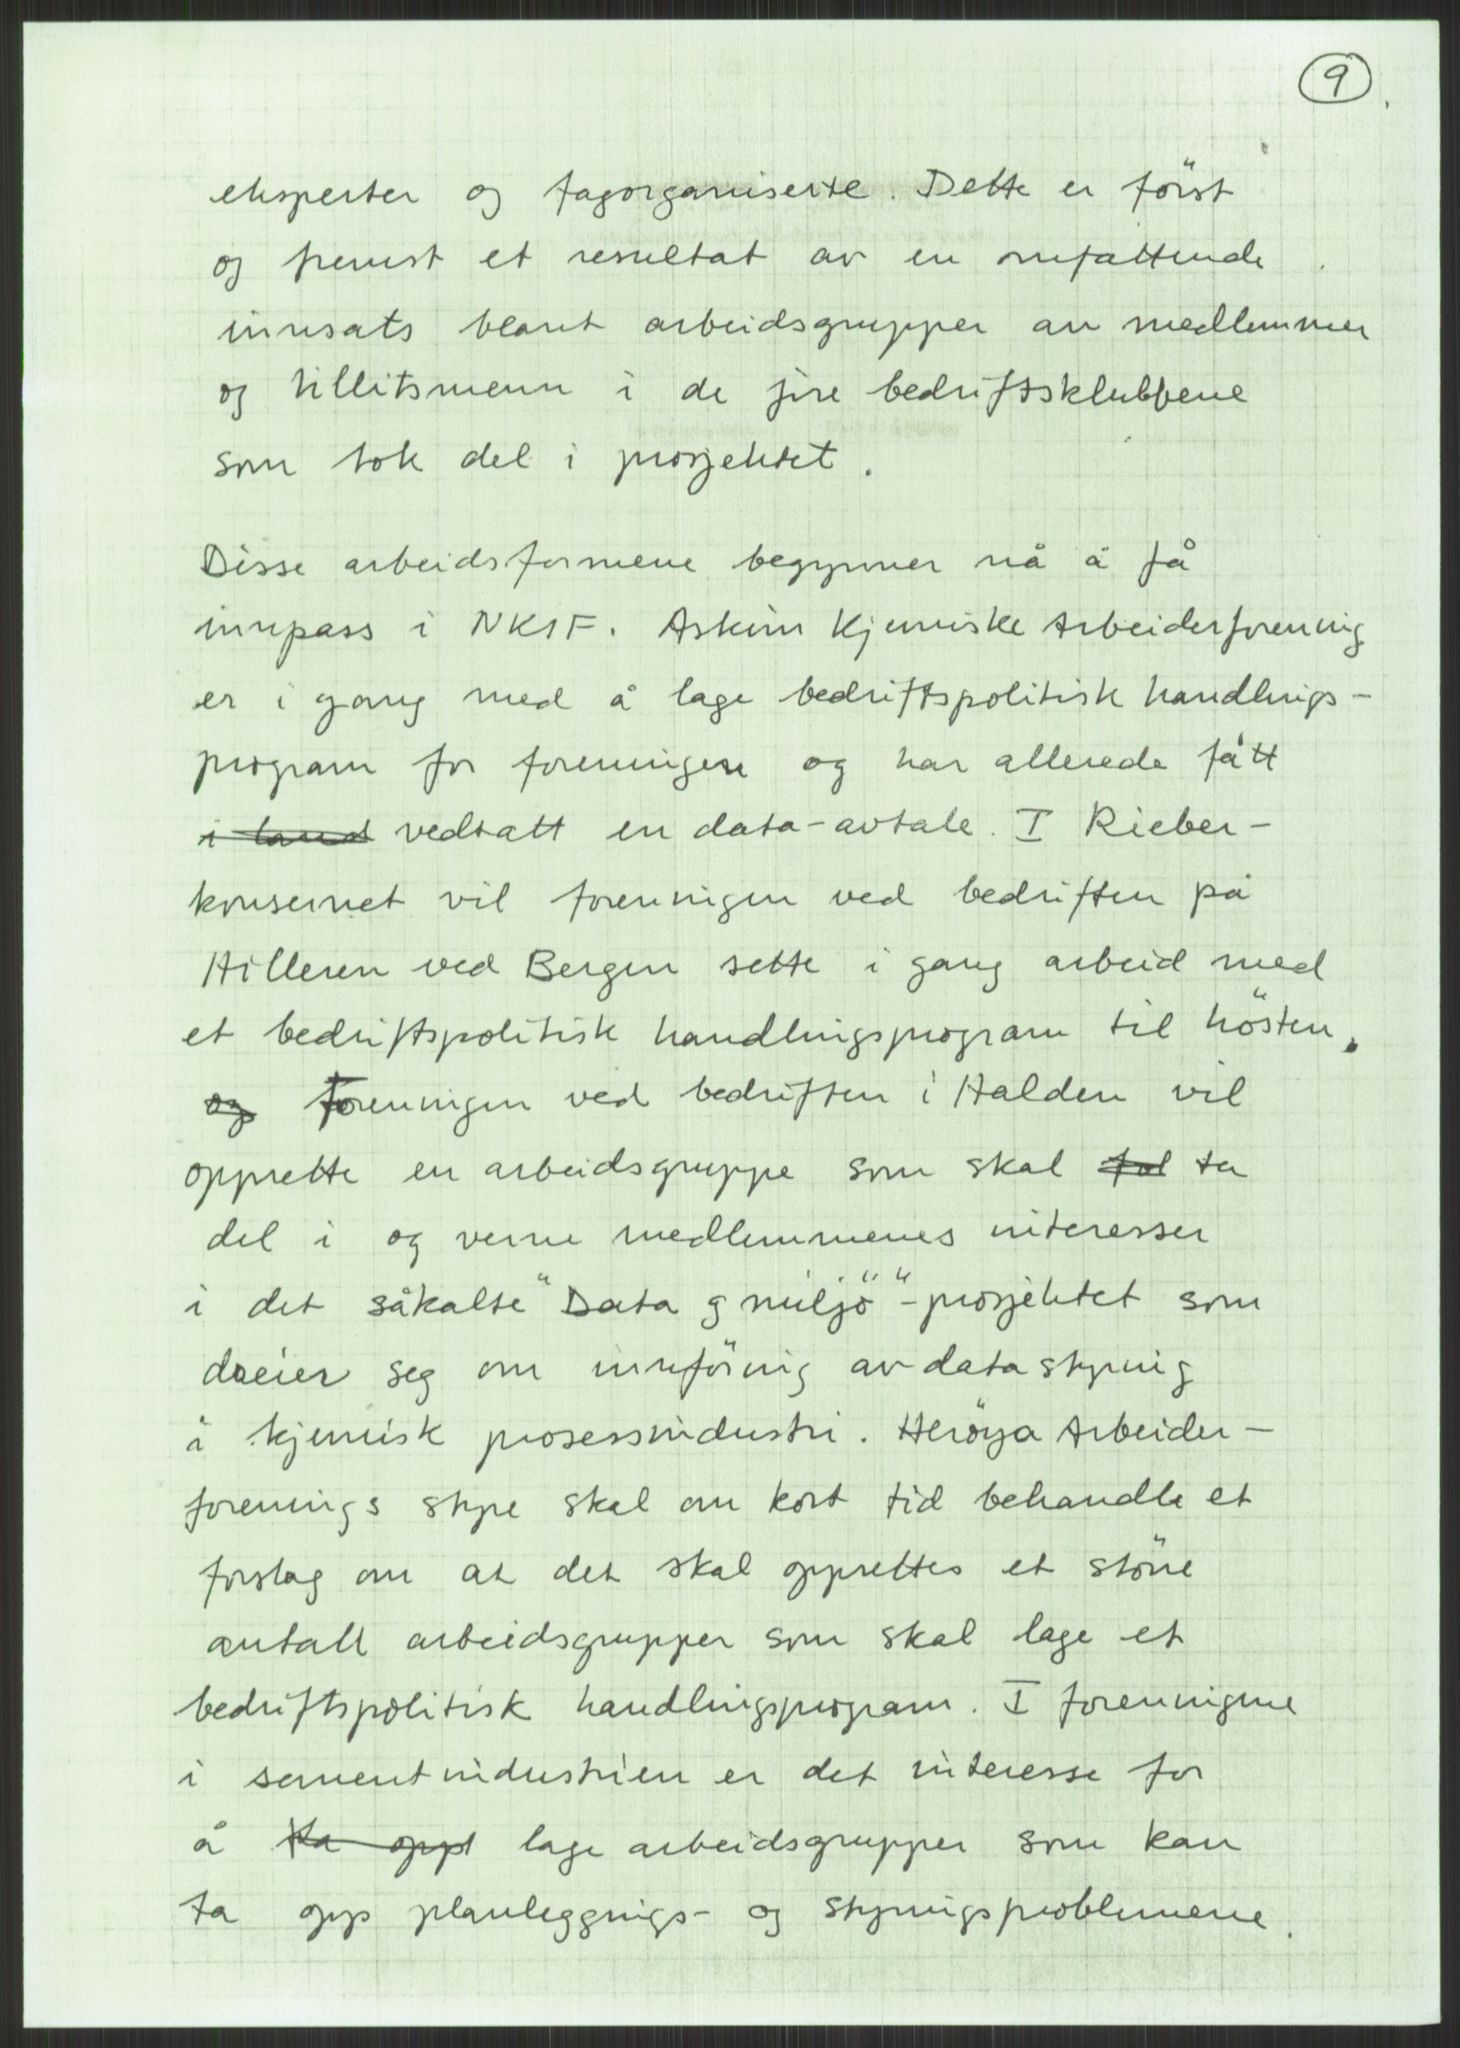 9
eksperter og fagorganiserte. Dette er först
og fremst et resultat av en omfattende
innsats blant arbeidsgrupper av medlemmer
og tillitsmenn i de fire bedriftsklubbene
som tok del i prosjektet.
Disse arbeidsformene begynner nå å få
innpass i NKIF. Askim Kjemiske Arbeiderforening
er i gang med å lage bedriftspolitisk handlings-
program for foreningen og har allerede fått
i land vedtatt en data-avtale. I Rieber-
konsernet vil foreningen ved bedriften på
Hilleren ved Bergen sette i gang arbeid med
et bedriftspolitisk handlingsprogram til hösten.
og Foreningen ved bedriften i Halden vil
opprette en arbeidsgruppe som skal ta
del i og verne medlemmenes interesser
i det såkalte "Data og miljö"-prosjektet som
dreier seg om innföring av datastyring
i kjemisk prosessindustri. Heröya Arbeider-
forenings styre skal om kort tid behandle et
forslag om at det skal opprettes et större
antall arbeidsgrupper som skal lage et
bedriftspolitisk handlingsprogram. I foreningene
i sementindustrien er det interesse for
å ta opp lage arbeidsgrupper som kan
ta opp planleggings- og styringsproblemene.